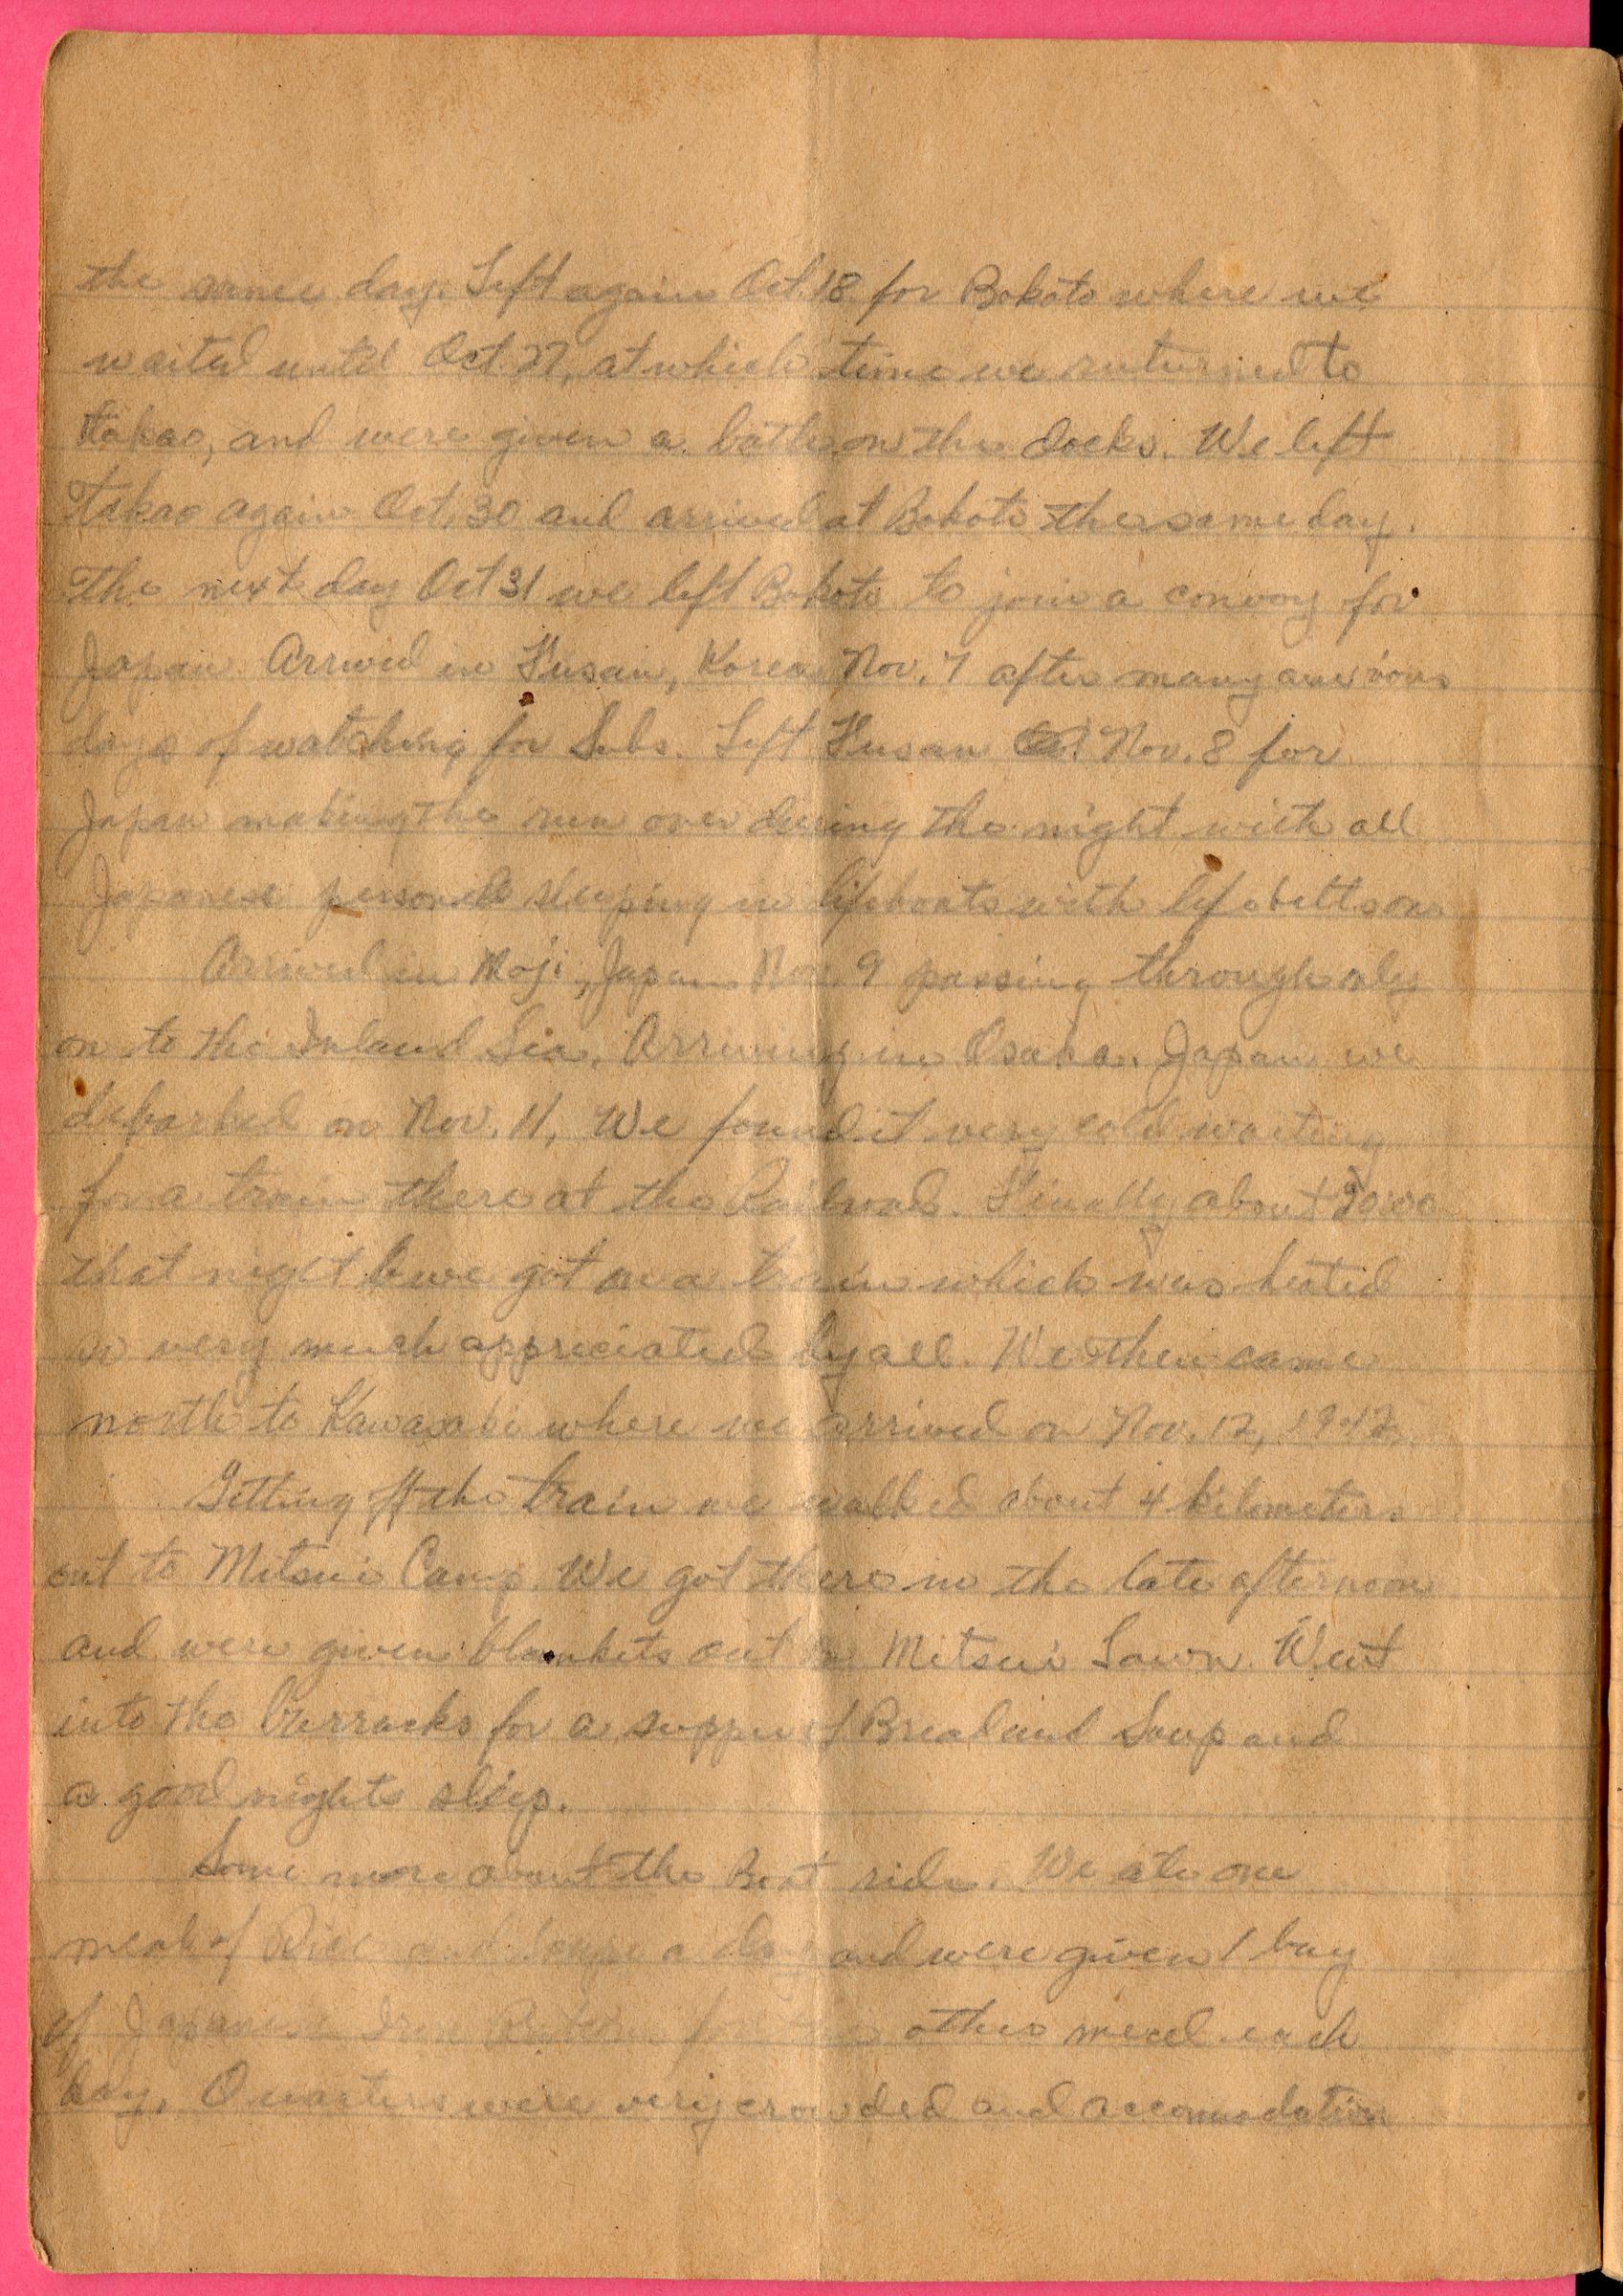 the same day. Left again Oct. 18 for Bokoto where we
waited until Oct. 27, at which time we returned to
Takao, and were given a bath on the docks. We left
Takao again Oct. 30 and arrived at Bokoto the same day.
The next day Oct 31 we left Bokoto to join a convoy for
Japan. Arrived in Fusan, Korea Nov. 7 after many anxious
days of watching for Subs. Left Fusan Nov. 8 for
Japan making the run over during the night with all
Japanese sleeping in lifeboats with life belts on
Arrived in Moji, Japan Nov. 9 passing through only
on to the Inland Sea. Arriving in Osaka, Japan we
debarked on Nov. 11. We found it very cold waiting
for a train there at the Railroad. Finally about 20:00
that night we got on a train which was heated
very much appreciated by all. We then came
north to Kawasaki where we arrived on Nov. 12, 1942.
Getting off the train we walked about 4 kilometers
out to Mitsui Camp. We got there in the late afternoon
and were given blankets out on Mitsui Lawn. Went
into the barracks for a supper of Bread and Soup and
a good nights sleep.
Some more about the Boat ride. We ate one
meal of Rice and Soup a day and were given 1 bag
of Japanese for other meal each
day. Quarters were very crowded and accomodation